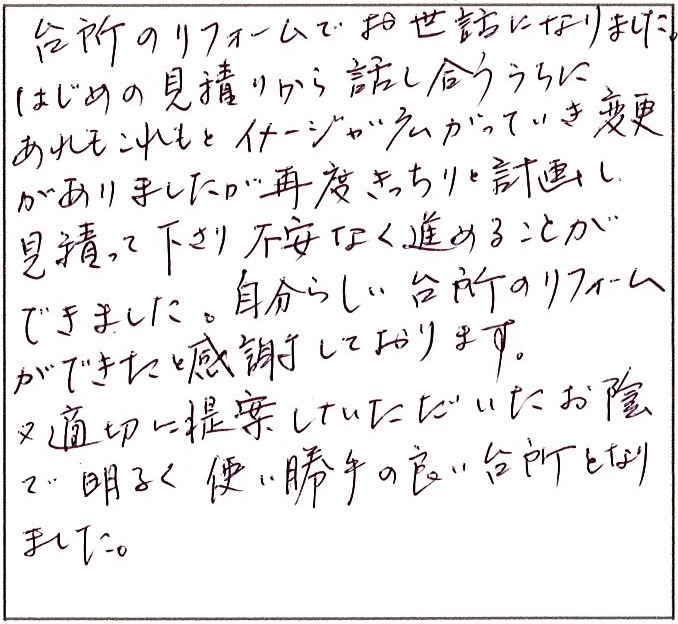 台所のリフォームでお世話になりました。
はじめの見積りから話し合ううちに
あれもこれもとイメージが広がっていき変更
がありましたが再度きっちりと計画し
見積って下さり不安なく進めることが
できました。自分らしい台所のリフォーム
ができたと感謝しております。
又適切に提案していただいたお陰
で明るく使い勝手の良い台所となり
ました。